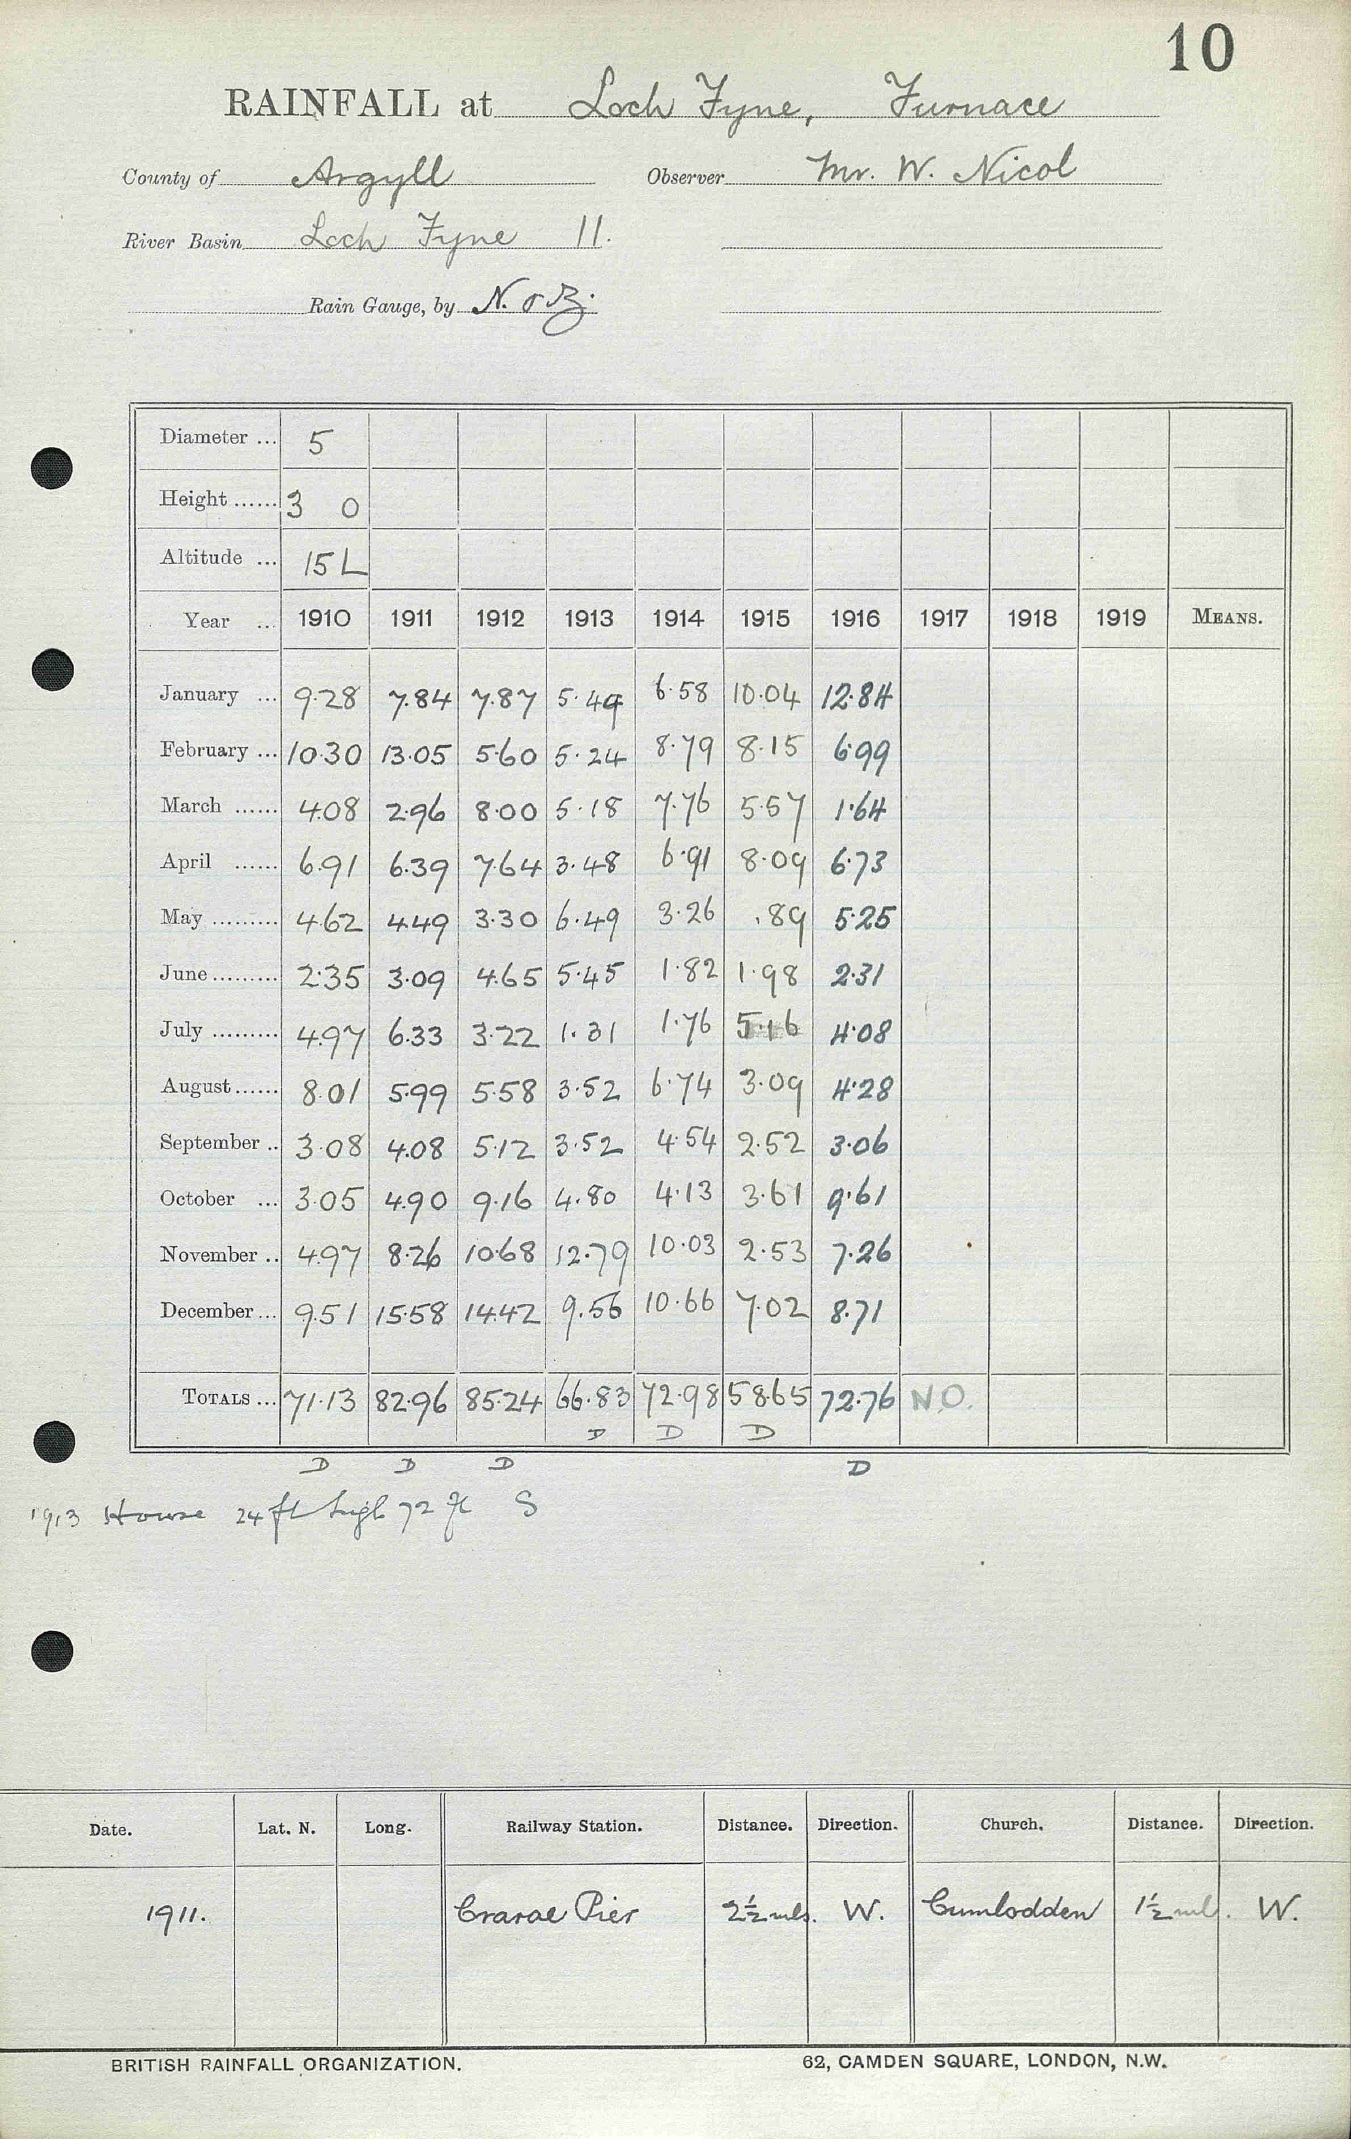 10
RAINFALL at Loch Fyne, Furnace
County of Argyll Observer Mr. W. Nicol
River Basin Loch Fyne 11.
Rain Gauge, by N. & Z.
Diameter ... 5
Height ...... 3 0
Altitude ... 15 L
Year ... 1910 1911 1912 1913 1914 1915 1916 1917 1918 1919 MEANS.
January ... 9.28 7.84 7.87 5.49 6.58 10.04 12.84
February ... 10.30 13.05 5.60 5.24 8.79 8.15 6.99
March ...... 4.08 2.96 8.00 5.18 7.76 5.57 1.64
April ...... 6.91 6.39 7.64 3.48 6.91 8.09 6.73
May ......... 4.62 4.49 3.30 6.49 3.26 .89 5.25
June ......... 2.35 3.09 4.65 5.45 1.82 1.98 2.31
July ......... 4.97 6.33 3.22 1.31 1.76 5.16 4.08
August ...... 8.01 5.99 5.58 3.52 6.74 3.09 4.28
September .. 3.08 4.08 5.12 3.52 4.54 2.52 3.06
October ... 3.05 4.90 9.16 4.80 4.13 3.61 9.61
November .. 4.97 8.26 10.68 12.79 10.03 2.53 7.26
December ... 9.51 15.58 14.42 9.56 10.66 7.02 8.71
TOTALS ... 71.13 82.96 85.24 66.83 72.98 58.65 72.76 N.O.
D D D
D D D D
1913 House 24 ft high 72 ft S
Date. Lat. N. Long. Railway Station. Distance. Direction. Church. Distance. Direction.
1911. Crarae Pier 2½ mls. W. Cumlodden 1½ ml. W.
BRITISH RAINFALL ORGANIZATION. 62, CAMDEN SQUARE, LONDON, N.W.